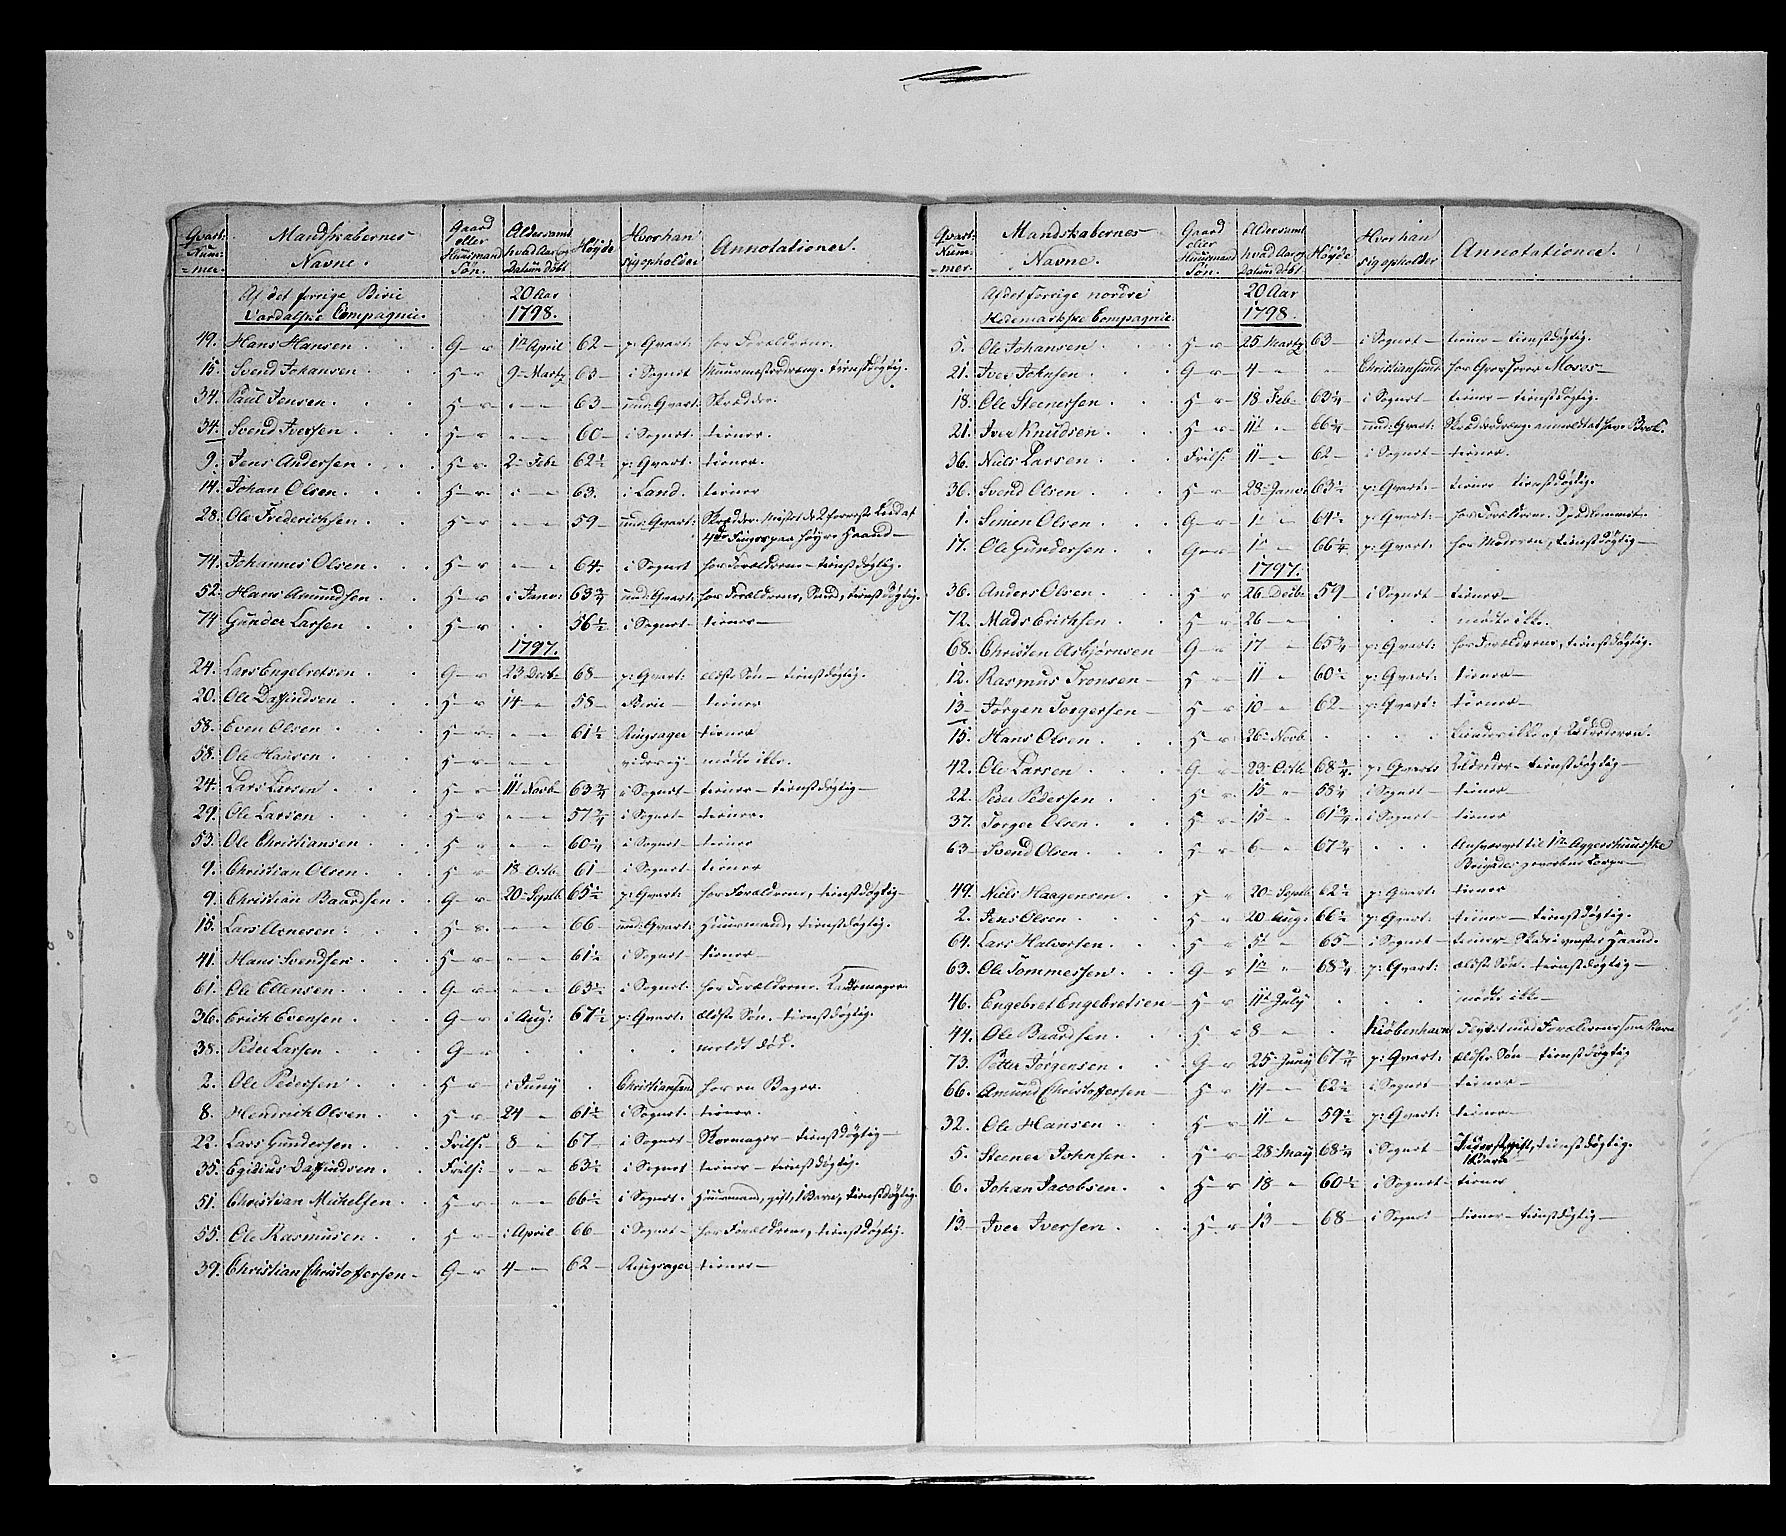 Qvart: Num- mer. Mandskabernes Navne. Gaard eller Huusmand Søn. Alder samt hvad Aar og Datum døbt Høyde Hvor han sig opholder Annotationer.
Af det forrige Birie Vardalske Compagnie. 20 Aar 1798.
49. Hans Hansen G- 1te April 62 p: Qvart: hos Forældrene.
15. Svend Johansen H- 9 Marty 63 i Sognet Muurmesterdreng. tienstdygtig.
34. Paul Jensen H- 63 und: Qvart: Skrædder.
34. Svend Iversen H- 60 i Sognet tiener.
9. Jens Andersen H- 2 Febr 62½ p: Qvart: tiener.
14. Johan Olsen H- i 63. i Land. tiener
28. Ole Frederichsen H- 59 und: Qvart: Skrædder. Mistet de 2 forreste Leed af
4de Finger paa høyre Haand
74. Johannes Olsen H- 64 i Sognet hos Forældrene tienstdygtig.
52. Hans Amundsen H- i Janv: 63¾ und: Qvart: hos Forældrene, tienstdygtig.
74 Gunder Larsen H- 56½ i Sognet tiener
1797.
24. Lars Engebretsen G- 23 Decbr 68 p: Qvart: ældste Søn tienstdygtig.
20. Ole Daffindsen H- 14 58 Birie tiener
58. Even Olsen H- 61½ Ringsager tiener
58. Ole Hansen H- mødte ikke.
24. Lars Larsen H- 11 Novb 63¾ i Sognet tiener tienstdygtig
29. Ole Larsen H- 57¾ i Sognet tiener.
53. Ole Christiansen 60¼ i Sognet tiener
9. Christian Olsen H- 18 Octb 61 i Sognet tiener
9. Christian Baardsen G- 20 Septb 65½ p: Qvart: hos Forældrene, tienstdygtig
15. Lars Arnesen H- 66 und: Qvart: Huusmand, tienstdygtig.
41. Hans Svendsen H- 61½ i Sognet tiener
61. Ole Ellensen G- 63½ i Sognet hos Forældrene.
36. Erich Evensen G- i Aug: 67½ p: Qvart: ældste Søn. tienstdygtig.
38. Peder Larsen G- meldt død.
2. Ole Pedersen H- i Juny Christiansand hos en Bager.
8. Hendrich Olsen H- 24 61½ i Sognet tiener.
22. Lars Gundersen Frilst: 8 67 i Sognet Skomager tienstdygtig
35. Egidius Daffindsen Frilst: 63½ i Sognet tiener tienstdygtig.
51. Christian Michelsen H- 66½ i Sognet. Huusmand, gift, 1 Barn, tienstdygtig.
55. Ole Rasmusen H- i April 66 i Sognet hos Forældrene, tienstdygtig.
39. Christian Christoffersen G- 4 62 Ringsager tiener
Qvart: Num- mer. Mandskabernes Navne. Gaard eller Huusmand Søn. Alder samt hvad Aar og Datum døbt Høyde Hvor han sig opholder Annotationer.
Af det forrige nordre Hedemarkske Compagnie. 20 Aar 1798.
5. Ole Johansen H- 25 Marty 63 i Sognet tiener tienstdygtig.
21. Iver Johnsen G- 4 Christiansund hos Moses
18. Ole Steenersen H- 18 Febr i Sognet tiener tienstdygtig.
21. Iver Knudsen H- 11 66¼ und: Qvart: Skrædderdreng
36. Niels Larsen Frilst: 11 62 i Sognet tiener.
36. Svend Olsen H- 28 Janv 63½ p: Qvart: tiener tienstdygtig.
1. Simen Olsen G- 1 64½ p: Qvart: hos Forældrene.
17. Ole Gundersen G- 1 66¼ p: Qvart: hos Moderen, tienstdygtig
1797.
36. Anders Olsen H- 26 Decbr 59 i Sognet tiener
72. Mads Erichsen H- 26 mødte ikke.
68. Christen Asbjørnsen G- 17 65¾ p: Qvart: hos Forældrene, tienstdygtig.
12. Rasmus Tronsen H- 11 60½ p: Qvart: tiener
13 Jørgen Torgersen H- 10 62 p: Qvart: tiener
15. Hans Olsen H- 26 Novb
42. Ole Larsen G- 23 Octb 68¼ p: Qvart: tienstdygtig
22. Peder Pedersen H- 15 58¼ i Sognet tiener
37. Torger Olsen H- 15 61¾ i Sognet tiener
63 Svend Olsen H- 6 67¾ til 1te Aggershuusske
Brigades
49. Niels Haagensen H- 20 Septb 62½ p: Qvart: tiener
2. Jens Olsen H- 20 Aug: 66½ p: Qvart: tiener tienstdygtig.
64. Lars Halversen H- 5 65 i Sognet tiener Haand.
63. Ole Tommessen G- 1te 68¾ p: Qvart: ældste Søn. tienstdygtig
46. Engebret Engebretsen H- 11 July mødte ikke
44. Ole Baardsen H- 8 Kiøbenhavn
73. Petter Jørgensen G- 25 Juny 67¾ p: Qvart: ældste Søn tienstdygtig
66. Amund Christoffersen H- 14 62½ i Sognet tiener
32. Ole Hansen H- 11 59½ p: Qvart: tiener
5. Steener Johnsen H- 28 May 68¼ i Sognet gift, tienstdygtig.
1 Barn
6. Johan Jacobsen H- 18 60½ i Sognet tiener
13 Iver Iversen H- 13 68 i Sognet tiener tienstdygtig